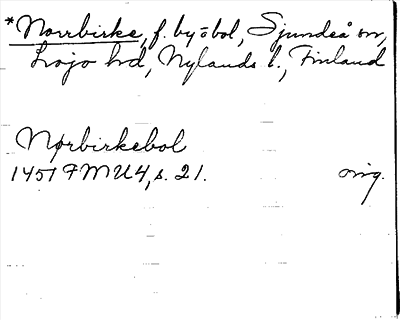 *Norrbirke, f. by o bol, Sjundeå sn,
Lojo hd, Nylands l., Finland
Nørbirkebol
1451 FMU4, s. 21. orig.